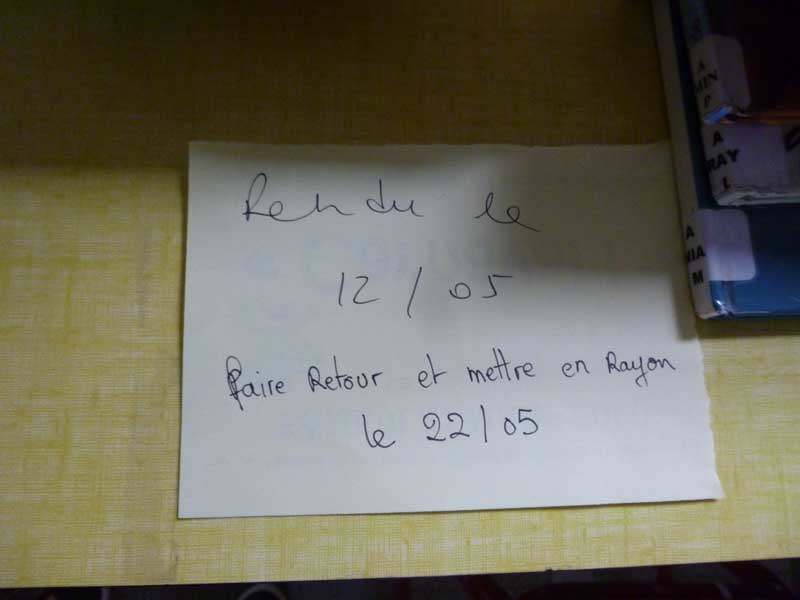 Rendu le
12/05
Faire Retour et mettre en Rayon
le 22/05
A
MIN
P
A
RAY
L
A
NIA
M